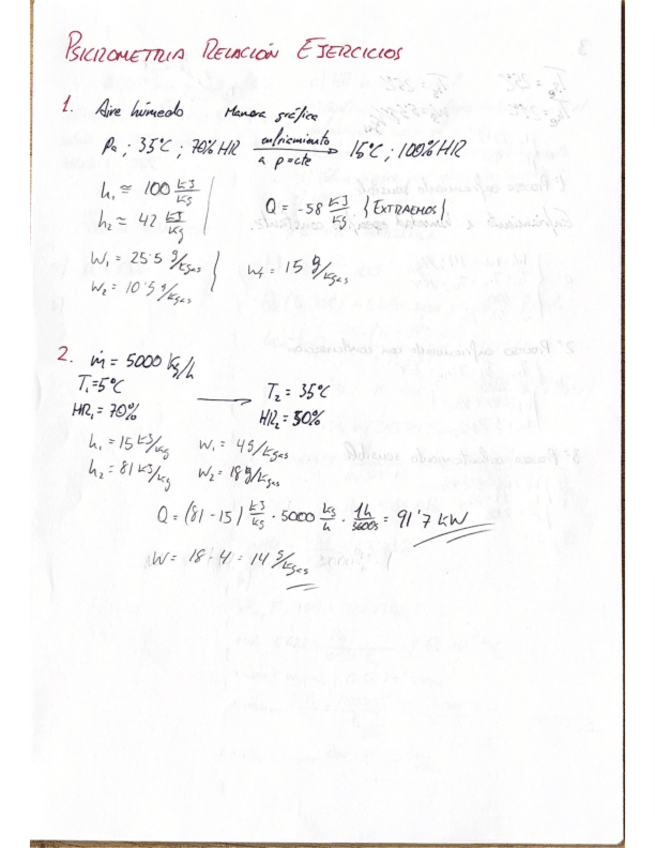 PSICROMETRIA RELACIÓN EJERCICIOS
1. Aire húmedo Manera gráfica
Pa ; 35ºC ; 70% HR enfriamiento a p=cte 15ºC ; 100% HR
h₁ ≃ 100 kJ/kg
Q = -58 kJ/kg {EXTRAEMOS}
h₂ ≃ 42 kJ/kg
W₁ = 25'5 g/kgas
W₂ = 10'5 g/kgas
Wf = 15 g/kgas
2. ṁ = 5000 kg/h
T₁ = 5ºC T₂ = 35ºC
HR₁ = 70% HR₂ = 50%
h₁ = 15 kJ/kg W₁ = 4 g/kgas
h₂ = 81 kJ/kg W₂ = 18 g/kgas
Q = (81 - 15) kJ/kg · 5000 kg/h · 1h/3600s = 91'7 kW
W = 18 - 4 = 14 g/kgas